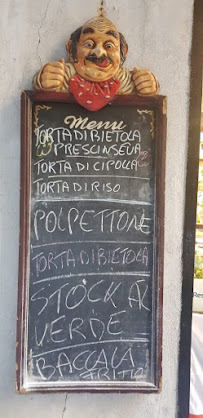 Menu
TORTA DI BIETOLA
PRESCINSEUA
TORTA DI CIPOLLA
TORTA DI RISO
POLPETTONE
TORTA DI BIETOLA
STOCK AL
VERDE
BACCALÀ
FRITTO